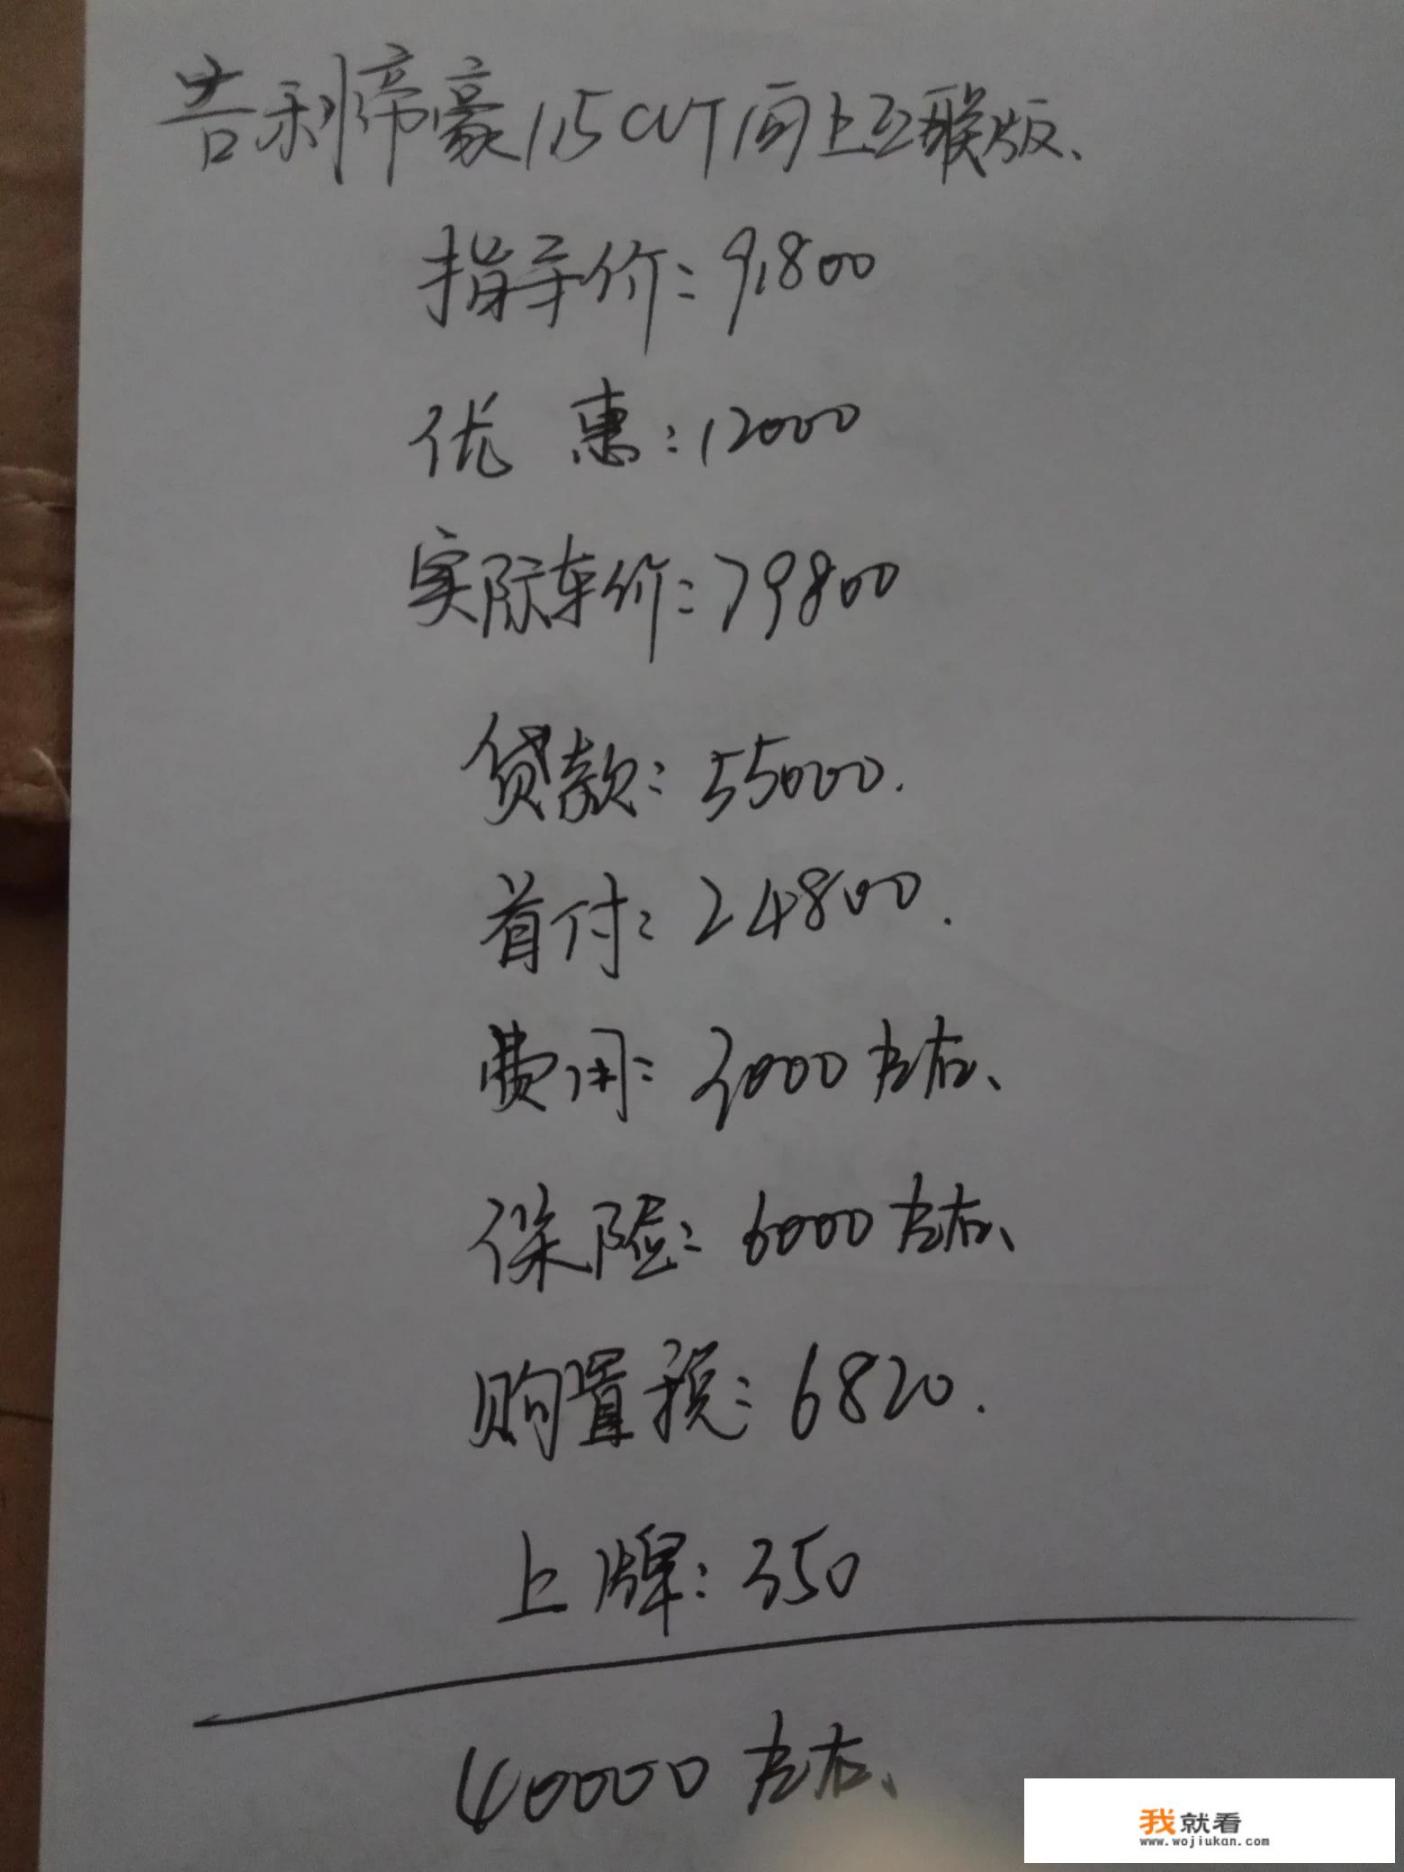 吉利帝豪1.5CVT向上互联版、
指导价:91800
优惠:12000
实际车价:79800
贷款:55000.
首付:24800.
费用:2000左右、
保险:6000左右、
购置税:6820.
上牌:350
40000左右、
我就看
www.wojiukan.com